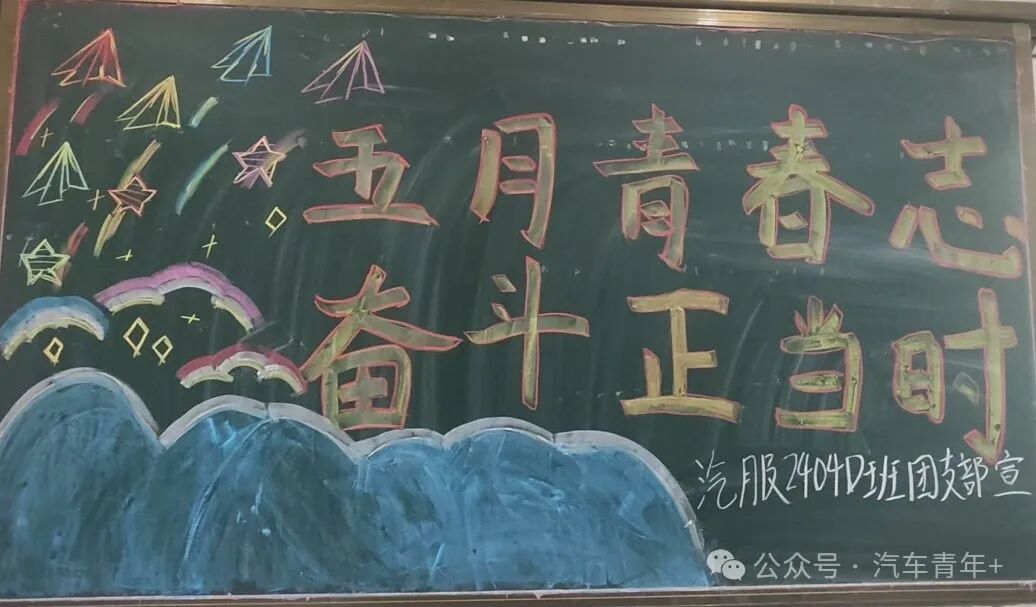 五月青春志
奋斗正当时
汽服2404D班团支部宣
公众号·汽车青年+